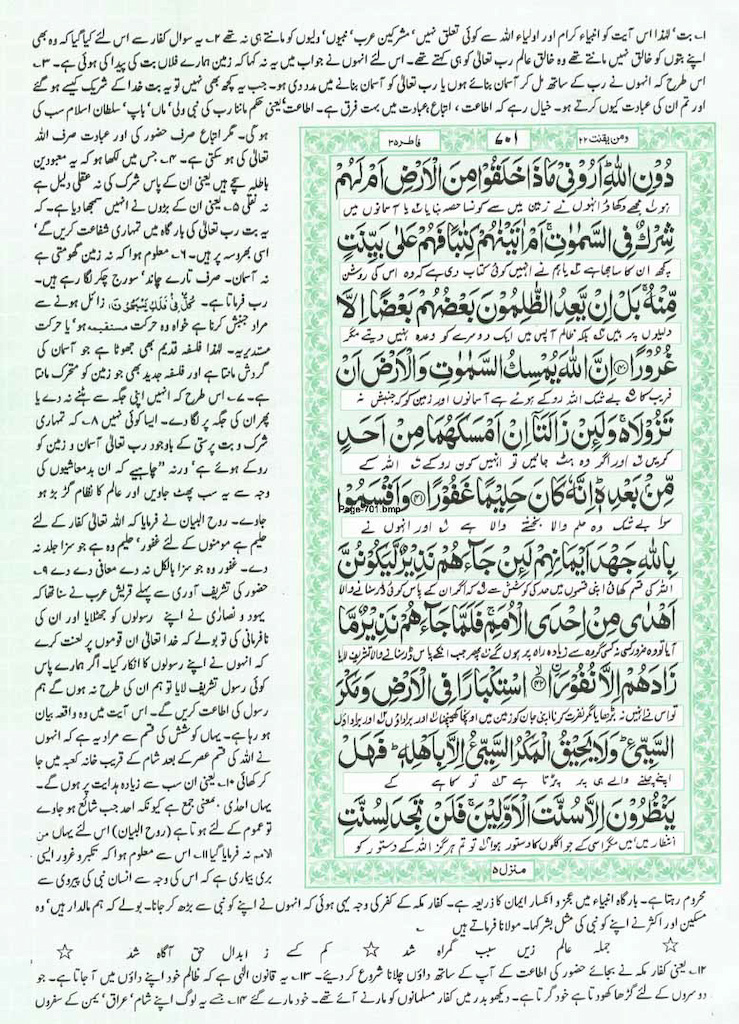 ۱؎ بت‘ لہٰذا اس آیت کو انبیاء کرام اور اولیاء اللہ سے کوئی تعلق نہیں‘ مشرکین عرب‘ نبیوں‘ ولیوں کو مانتے ہی نہ تھے ۲؎ یہ سوال کفار سے اس لئے کیا گیا کہ وہ بھی
اپنے بتوں کو خالق نہیں مانتے تھے وہ خالق عالم رب تعالیٰ کو ہی کہتے تھے۔ اس لئے انہوں نے جواب میں یہ نہ کہا کہ زمین ہمارے فلاں بت کی پیدا کی ہوئی ہے۔ ۳؎
اس طرح کہ انہوں نے رب کے ساتھ مل کر آسمان بنائے ہوں یا رب تعالیٰ کو آسمان بنانے میں مدد دی ہو۔ جب یہ کچھ بھی نہیں تو یہ بت خدا کے شریک کیسے ہو گئے
اور تم ان کی عبادت کیوں کرتے ہو۔ خیال رہے کہ اطاعت، اتباع، عبادت میں بہت فرق ہے۔ اطاعت‘ یعنی حکم ماننا رب کی نبی ولی‘ ماں‘ باپ‘ سلطان اسلام سب کی
ہو گی۔ مگر اتباع صرف حضور کی اور عبادت صرف اللہ
تعالیٰ کی ہو سکتی ہے۔ ۴؎ جس میں لکھا ہو کہ یہ معبودین
باطلہ سچے ہیں یعنی ان کے پاس شرک کی نہ عقلی دلیل ہے
نہ نقلی ۵؎ یعنی ان کے بڑوں نے انہیں سمجھا دیا ہے۔ کہ
یہ بت رب تعالیٰ کی بار گاہ میں تمہاری شفاعت کریں گے‘
اسی بھروسہ پر ہیں۔ ۶؎ معلوم ہوا کہ نہ زمین گھومتی ہے
نہ آسمان۔ صرف تارے چاند‘ سورج چکر لگا رہے ہیں۔
رب فرماتا ہے۔ كُلٌّ فِيْ فَلَكٍ يَّسْبَحُوْنَ، زائل ہونے سے
مراد جنبش کرنا ہے خواہ وہ حرکت مستقیمہ ہو‘ یا حرکت
مستدیریہ۔ لہٰذا فلسفہ قدیم بھی جھوٹا ہے جو آسمان کی
گردش مانتا ہے اور فلسفہ جدید بھی جو زمین کو متحرک مانتا
ہے۔ ۷؎ اس طرح کہ انہیں اپنی جگہ سے ہٹنے نہ دے یا
پھر ان کی جگہ پر لگا دے۔ ایسا کوئی نہیں ۸؎ کہ تمہاری
شرک و بت پرستی کے باوجود رب تعالیٰ آسمان و زمین کو
روکے ہوئے ہے‘ ورنہ “چاہیے کہ ان بدمعاشیوں کی
وجہ سے یہ سب پھٹ جاویں اور عالم کا نظام گڑ بڑ ہو
جاوے۔ روح البیان نے فرمایا کہ اللہ تعالیٰ کفار کے لئے
حلیم ہے مومنوں کے لئے غفور‘ حلیم وہ ہے جو سزا جلد نہ
دے۔ غفور وہ جو سزا بالکل نہ دے معافی دے دے ۹؎
حضور کی تشریف آوری سے پہلے قریش عرب نے سنا تھا کہ
یہود و نصاریٰ نے اپنے رسولوں کو جھٹلایا اور ان کی
نافرمانی کی تو بولے کہ خدا تعالیٰ ان قوموں پر لعنت کرے
کہ انہوں نے اپنے رسولوں کا انکار کیا۔ اگر ہمارے پاس
کوئی رسول تشریف لایا تو ہم ان کی طرح نہ ہوں گے ہم
رسول کی اطاعت کریں گے۔ اس آیت میں وہ واقعہ بیان
ہو رہا ہے۔ یہاں کوشش کی قسم سے مراد یہ ہے کہ انہوں
نے اللہ کی قسم عصر کے بعد شام کے قریب خانہ کعبہ میں جا
کر کھائی ۱۰؎ یعنی ان سب سے زیادہ ہدایت پر ہوں گے۔
یہاں احدٰی ،معنی جمع ہے کیونکہ احد جب شائع ہو جاوے
تو عموم کے لئے ہوتا ہے (روح البیان) اس لئے یہاں من
الامم نہ فرمایا گیا ۱۱؎ اس سے معلوم ہوا کہ تکبر و غرور ایسی
بری بیماری ہے کہ اس کی وجہ سے انسان نبی کی پیروی سے
ومن یقنت ۲۲
۷۰۱
فاطر ۳۵
دُوْنِ اللّٰهِ اَرُوْنِيْ مَاذَا خَلَقُوْا مِنَ الْاَرْضِ اَمْ لَهُمْ
ہو ل مجھے دکھاؤ انہوں نے زمین میں سے کونسا حصہ بنایا ت یا آسمانوں میں
شِرْكٌ فِي السَّمٰوٰتِ اَمْ اٰتَيْنٰهُمْ كِتٰبًا فَهُمْ عَلٰى بَيِّنَتٍ
کچھ ان کا ساجھا ہے یا ہم نے انہیں کوئی کتاب دی ہے کہ وہ اس کی روشن
مِّنْهُ بَلْ اِنْ يَّعِدُ الظّٰلِمُوْنَ بَعْضُهُمْ بَعْضًا اِلَّا
دلیلوں پر ہیں بلکہ ظالم آپس میں ایک دوسرے کو وعدہ نہیں دیتے مگر
غُرُوْرًا ﴿۴۰﴾ اِنَّ اللّٰهَ يُمْسِكُ السَّمٰوٰتِ وَالْاَرْضَ اَنْ
فریب کا بے شک اللہ روکے ہوئے ہے آسمانوں اور زمین کو کہ جنبش نہ
تَزُوْلَا وَلَئِنْ زَالَتَآ اِنْ اَمْسَكَهُمَا مِنْ اَحَدٍ
کریں اور اگر وہ ہٹ جائیں تو انہیں کون روکے اللہ کے
مِّنْ بَعْدِهٖ اِنَّهٗ كَانَ حَلِيْمًا غَفُوْرًا ﴿۴۱﴾ وَاَقْسَمُوْا
Page-701.bmp
سوا بے شک وہ حلم والا بخشنے والا ہے اور انہوں نے
بِاللّٰهِ جَهْدَ اَيْمَانِهِمْ لَئِنْ جَآءَهُمْ نَذِيْرٌ لَّيَكُوْنُنَّ
اللہ کی قسم کھائی اپنی قسموں میں حد کی کوشش سے کہ اگر ان کے پاس کوئی ڈر سنانے والا
اَهْدٰى مِنْ اِحْدَى الْاُمَمِ فَلَمَّا جَآءَهُمْ نَذِيْرٌ مَّا
آیا تو وہ ضرور کسی نہ کسی گروہ سے زیادہ راہ پر ہوں گے پھر جب انکے پاس ڈر سنانے والا تشریف لایا
زَادَهُمْ اِلَّا نُفُوْرًا ﴿۴۲﴾ اسْتِكْبَارًا فِي الْاَرْضِ وَمَكْرَ
تو اس نے انہیں نہ بڑھایا مگر نفرت کرنا اپنی جان کو زمین میں اونچا کھینچنا اور برا داؤں اور برا داؤں
السَّيِّئِ وَلَا يَحِيْقُ الْمَكْرُ السَّيِّئُ اِلَّا بِاَهْلِهٖ فَهَلْ
اپنے چلنے والے ہی پر پڑتا ہے تو کاہے کے
يَنْظُرُوْنَ اِلَّا سُنَّتَ الْاَوَّلِيْنَ فَلَنْ تَجِدَ لِسُنَّتِ
انتظار میں ہیں مگر اسی کے جو اگلوں کا دستور ہوا تو تم ہرگز اللہ کے دستور کو
منزل ۵
محروم رہتا ہے۔ بارگاہ انبیاء میں عجز و انکسار ایمان کا ذریعہ ہے۔ کفار مکہ کے کفر کی وجہ یہی ہوئی کہ انہوں نے اپنے کو نبی سے بڑھ کر جانا۔ بولے کہ ہم مالدار ہیں‘ وہ
مسکین اور اکثر نے اپنے کو نبی کی مثل بشر کہا۔ مولانا فرماتے ہیں
☆ جملہ عالم زیں سبب گمراہ شد ☆ کم کسے ز ابدال حق آگاہ شد ☆
۱۲؎ یعنی کفار مکہ نے بجائے حضور کی اطاعت کے آپ کے ساتھ داؤں چلانا شروع کر دیئے۔ ۱۳؎ یہ قانون الٰہی ہے کہ ظالم خود اپنے داؤں میں آ جاتا ہے۔ جو
دوسروں کے لئے گڑھا کھودتا ہے خود گرتا ہے۔ دیکھو بدر میں کفار مسلمانوں کو مارنے آئے تھے۔ خود مارے گئے ۱۴؎ جسے یہ لوگ اپنے شام‘ عراق‘ یمن کے سفروں